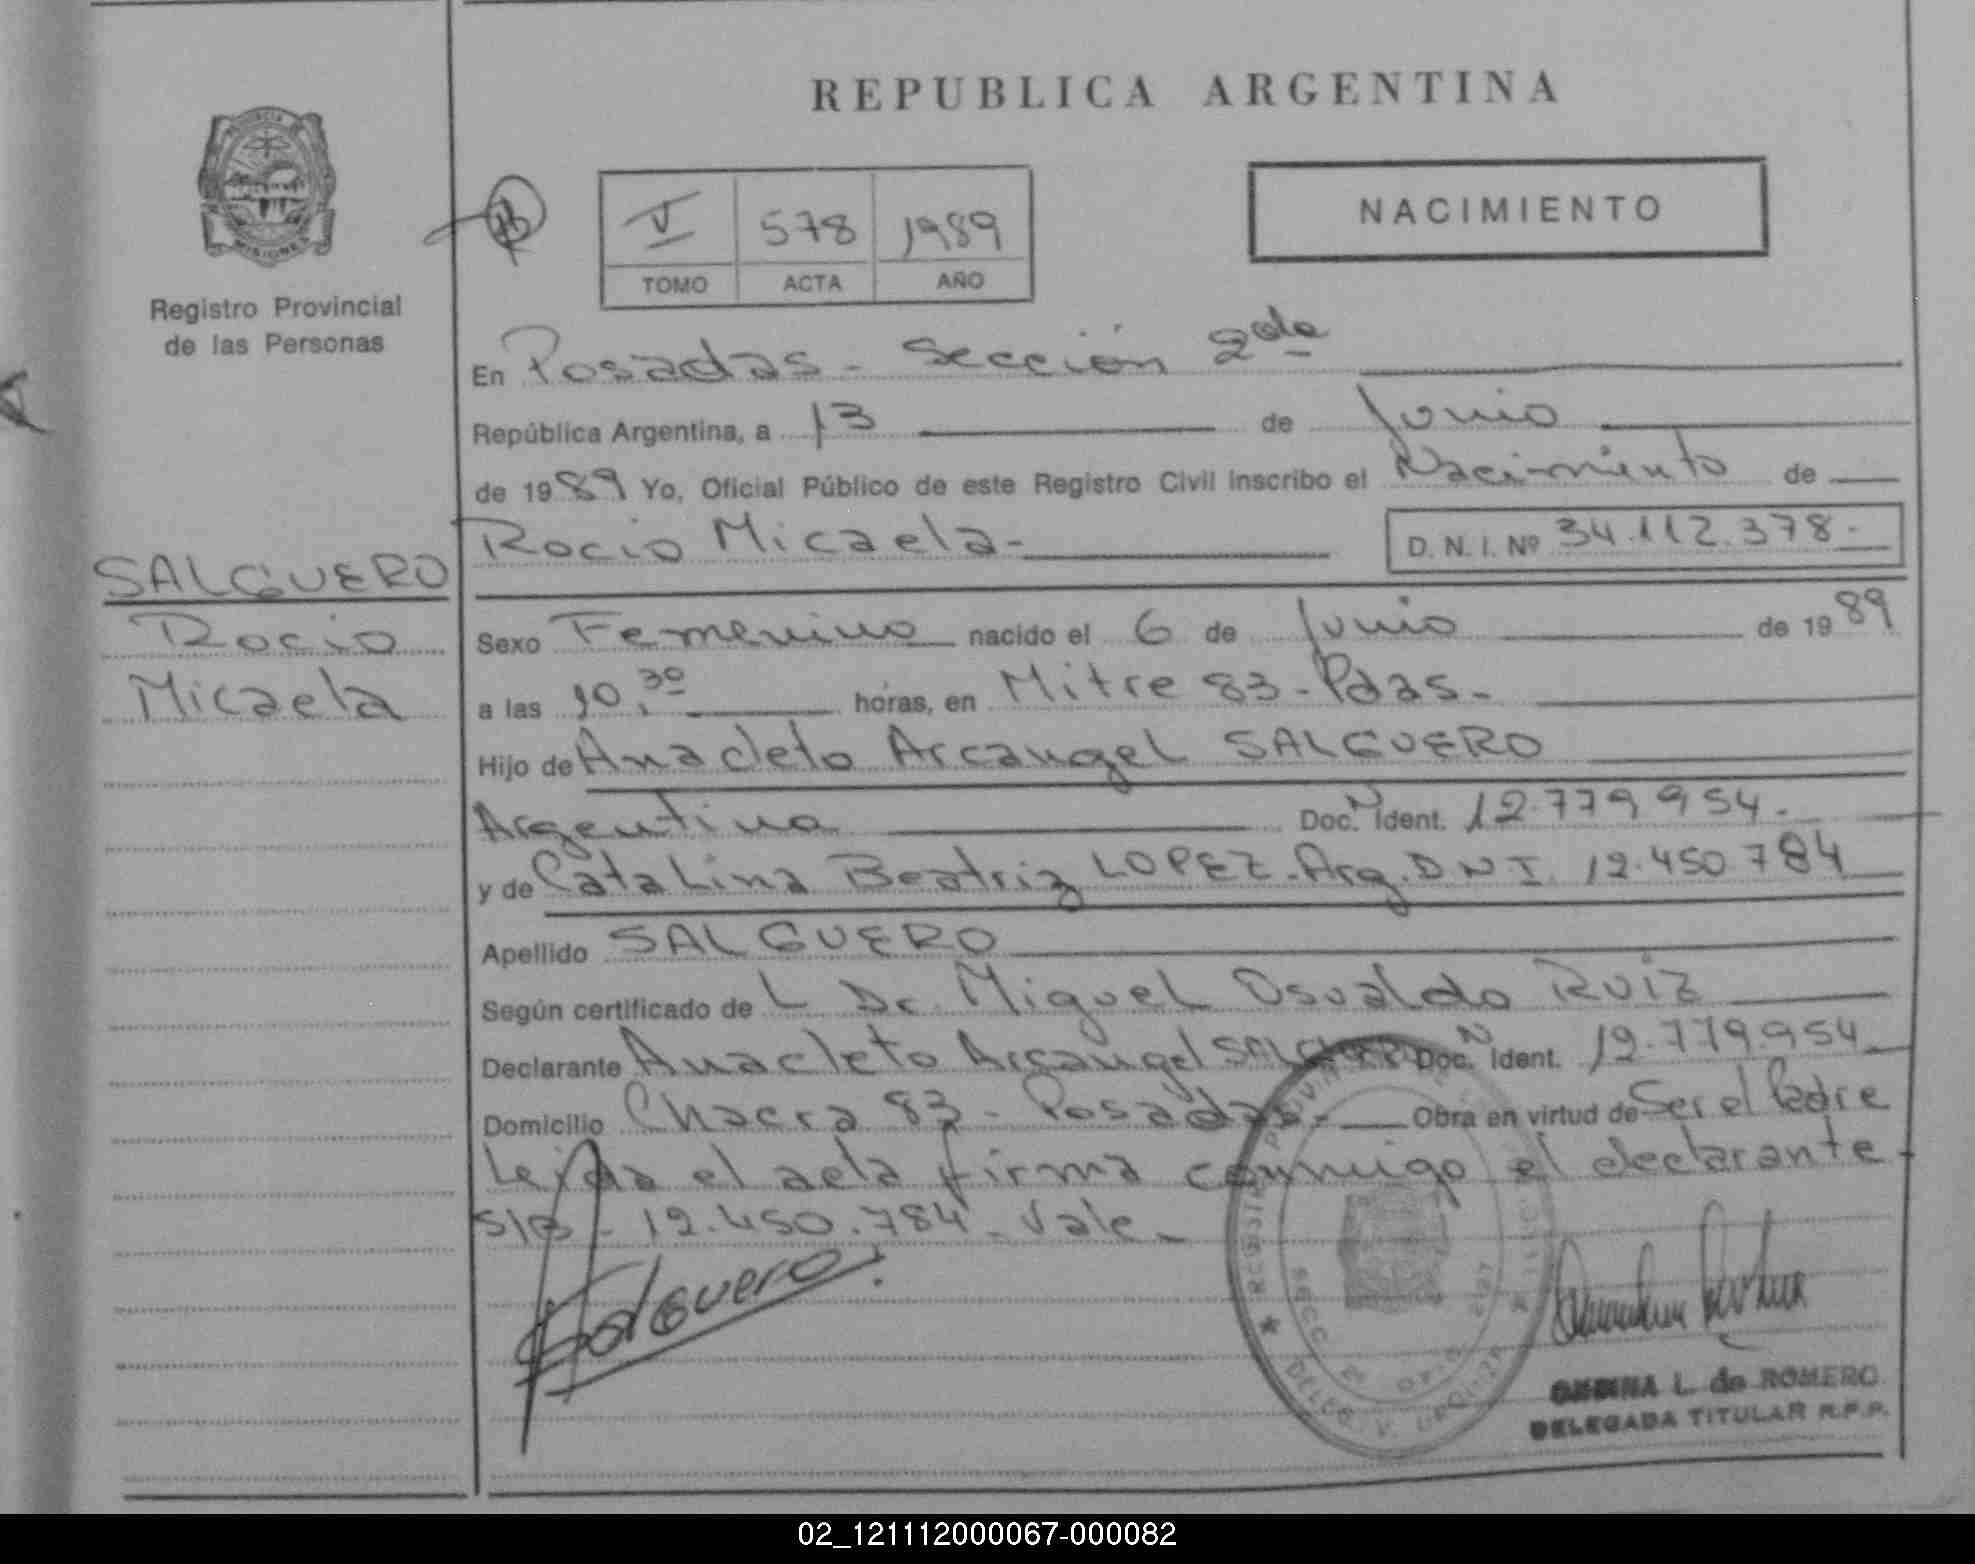 REPUBLICA ARGENTINA
PROVINCIA DE
MISIONES
Registro Provincial
de las Personas
V 578 1989
TOMO ACTA AÑO
NACIMIENTO
En Posadas - Sección 2da
República Argentina, a 13 de Junio
de 1989 Yo, Oficial Público de este Registro Civil inscribo el Nacimiento de
Rocio Micaela - D. N. I. Nº 34.112.378-
SALGUERO
Rocio
Micaela
Sexo Femenino nacido el 6 de Junio de 1989
a las 10,30 horas, en Mitre 83 - Pdas -
Hijo de Anacleto Arcangel SALGUERO
Argentino Doc. N Ident. 12.779954-
y de Catalina Beatriz LOPEZ - Arg. D N I. 12.450784
Apellido SALGUERO
Según certificado de L Dr. Miguel Osvaldo Ruiz
Declarante Anacleto Arcangel SALGUERO Doc. N Ident. 12.779954
Domicilio Chacra 83 - Posadas - Obra en virtud de Ser el Padre
Leida el acta firma conmigo el declarante -
S/B - 12.450.784 - Vale -
Salguero
L. de ROMERO
DELEGADA TITULAR R.P.P.
02_121112000067-000082